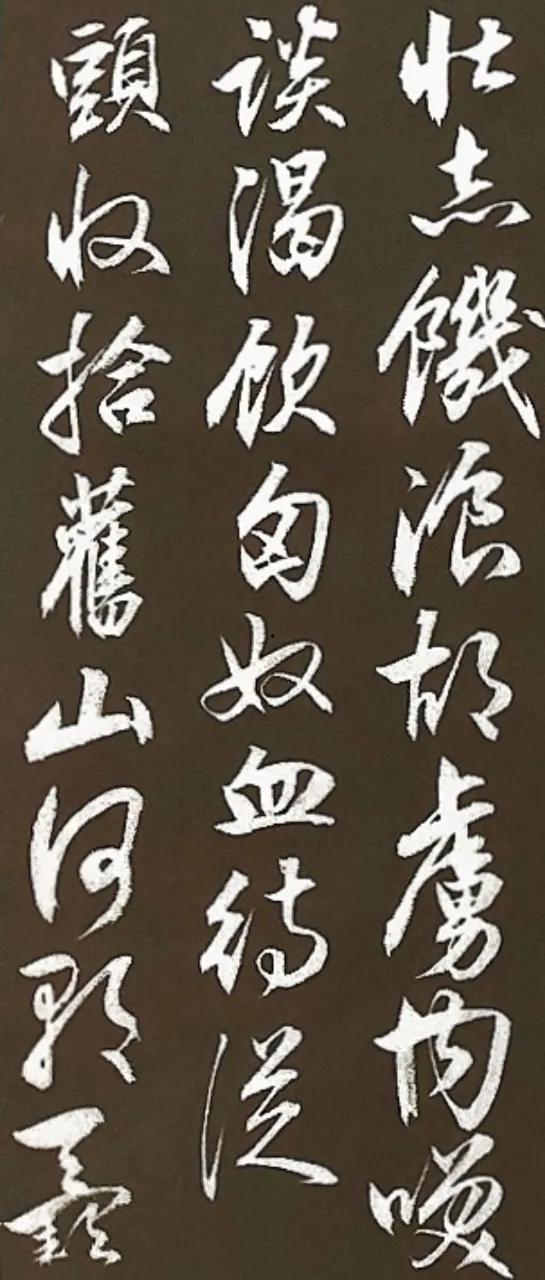 壯志饑飡胡虜肉咲
談渴飲匈奴血待從
頭收拾舊山河朝天闕